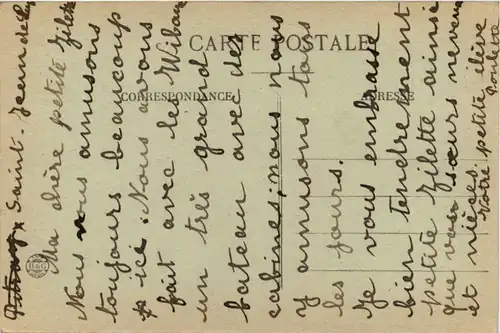 CARTE POSTALE
CORRESPONDANCE
ADRESSE
B&G
Saint-Jean de
Ma chère petite Zilette
Nous nous amusons
toujours beaucoup
ici. Nous avons
fait avec les
un très grand
bateau avec des
cabines, nous nous
y amusons tous
les jours.
Je vous embrasse
bien tendrement
petite Zilette ainsi
que vos sœurs neveux
et nièces.
Votre petite élève
Paulette